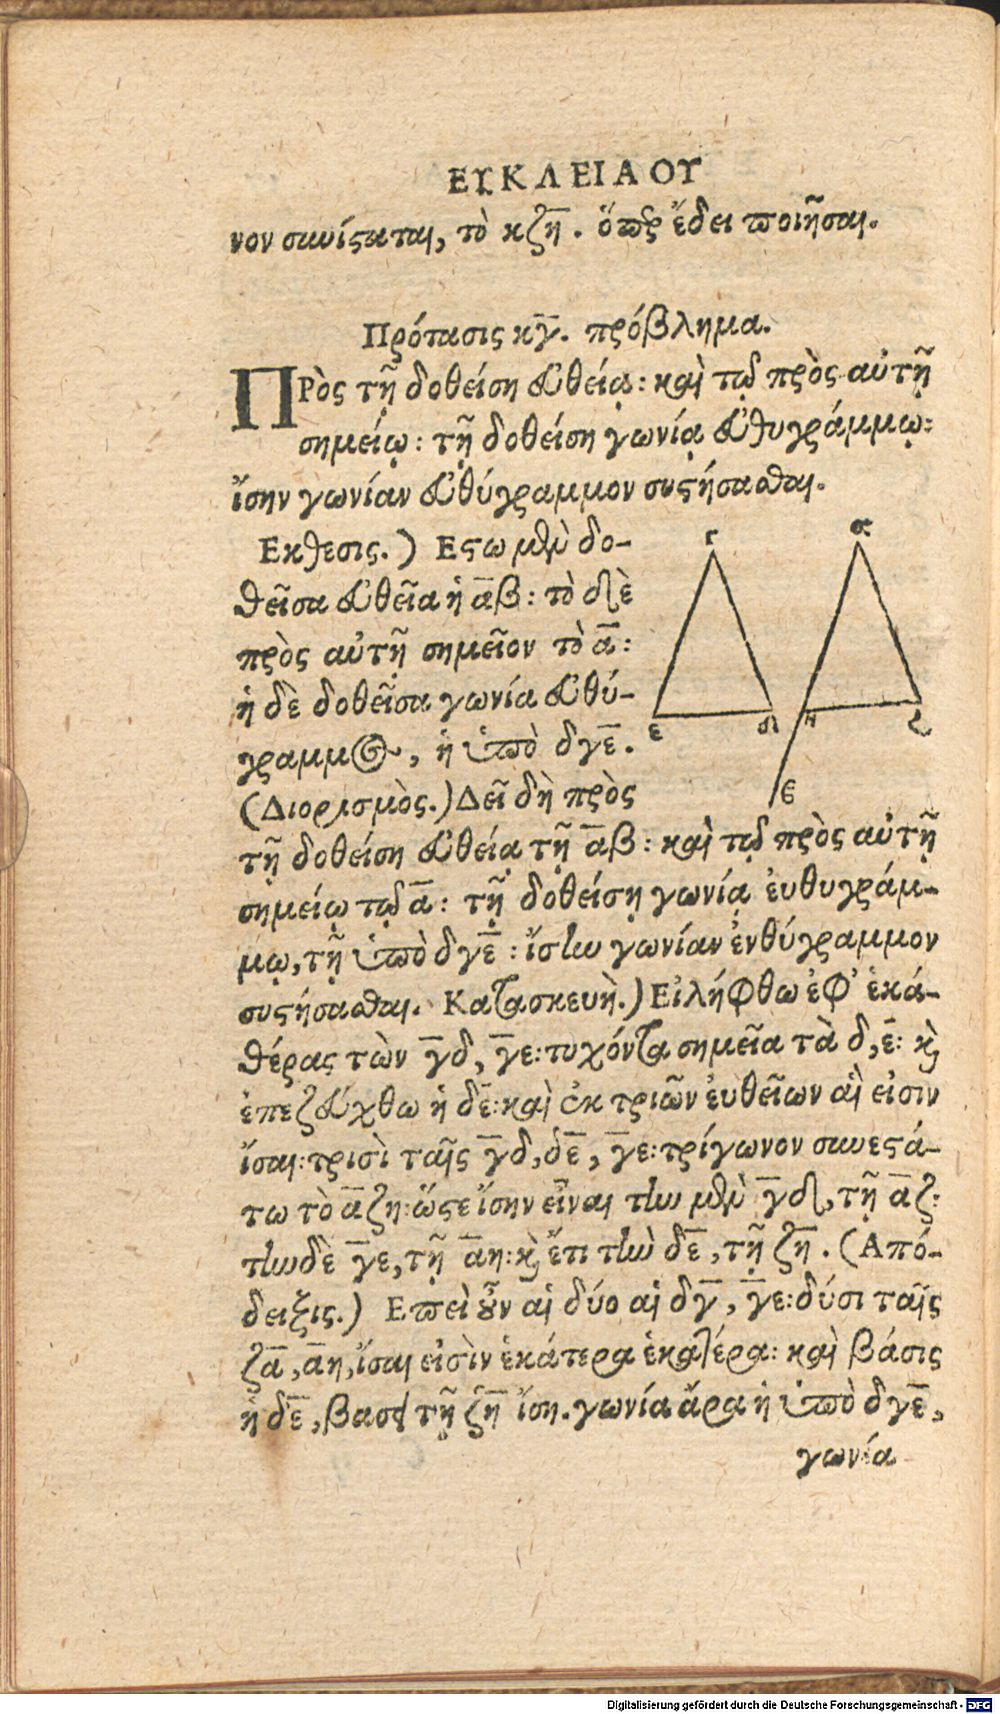 ΕΥΚΛΕΙΔΟΥ
νον συνίσταται, τὸ κζη̅. ὅπερ ἔδει ποιῆσαι.
Πρότασις κγ̅. πρόβλημα.
ΠΡὸς τῇ δοθείσῃ εὐθείᾳ: καὶ τῷ πρὸς αὐτῇ
σημείῳ: τῇ δοθείσῃ γωνίᾳ εὐθυγράμμῳ:
ἴσην γωνίαν εὐθύγραμμον συστήσασθαι.
Εκθεσις.) Εστω μὲν δο-
θεῖσα εὐθεῖα ἡ α̅β: τὸ δὲ
πρὸς αὐτῇ σημεῖον τὸ α̅:
ἡ δὲ δοθεῖσα γωνία εὐθύ-
γραμμος, ἡ ὑπὸ δγε̅.
(Διορισμὸς.) Δεῖ δὴ πρὸς
τῇ δοθείσῃ εὐθείᾳ τῇ α̅β: καὶ τῷ πρὸς αὐτῇ
σημείῳ τῷ α̅: τῇ δοθείσῃ γωνίᾳ ἐυθυγράμ-
μῳ, τῇ ὑπὸ δγε̅: ἴσην γωνίαν ἐνθύγραμμον
συστήσασθαι. Κατασκευὴ.) Εἰλήφθω ἐφ' ἑκά-
θέρας τῶν γ̅δ, γ̅ε: τυχόντα σημεῖα τὰ δ, ε̅: καὶ
ἐπεζεύχθω ἡ δε̅: καὶ ἐκ τριῶν ἐυθεῖων αἵ εἰσιν
ἴσαι: τρισὶ ταῖς γ̅δ, δε̅, γ̅ε: τρίγωνον συνεστά-
τω τὸ α̅ζη: ὥστε ἴσην εἶναι τὴν μὲν γ̅δ, τῇ α̅ζ:
τὴν δὲ γ̅ε, τῇ α̅η: καὶ ἔτι τὴν δε̅, τῇ ζη̅. (Από-
δειξις.) Επεὶ οὖν αἱ δύο αἱ δγ̅, γ̅ε: δύσι ταῖς
ζα̅, α̅η, ἴσαι εἰσὶν ἑκάτερα ἑκατέρα: καὶ βάσις
ἡ δε̅, βασει τῇ ζη̅ ἴση. γωνία ἄρα ἡ ὑπὸ δγε̅,
γωνία
γ
α
ε
δ
η
ζ
Digitalisierung gefördert durch die Deutsche Forschungsgemeinschaft - DFG